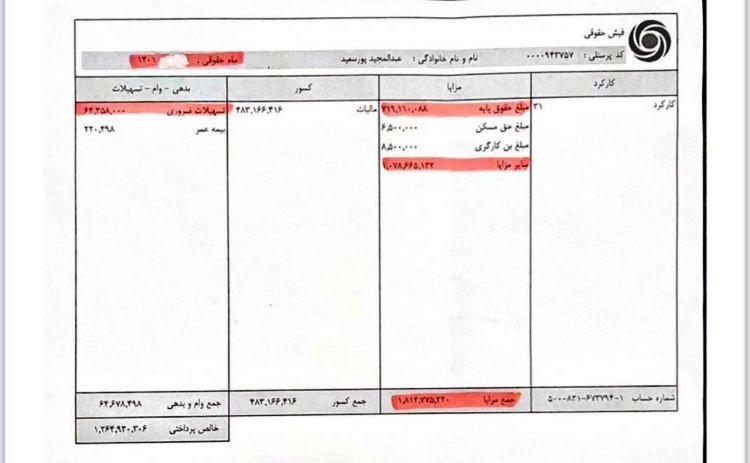 فیش حقوقی
کد پرسنلی : ۰۰۰۰۹۴۳۷۵۷ نام و نام خانوادگی : عبدالمجید پورسعید ماه حقوقی : ۱۴۰۱
کارکرد مزایا کسور بدهی - وام - تسهیلات
کارکرد ۳۱ مبلغ حقوق پایه ۷۱۹,۱۱۰,۰۸۸ مالیات ۴۸۳,۱۶۶,۴۱۶ تسهیلات ضروری ۶۴,۴۵۸,۰۰۰
مبلغ حق مسکن ۶,۵۰۰,۰۰۰ بیمه عمر ۲۲۰,۴۹۸
مبلغ بن کارگری ۸,۵۰۰,۰۰۰
سایر مزایا ۱,۰۷۸,۶۶۵,۱۳۲
شماره حساب ۵۰۰-۸۳۱-۶۷۳۷۹۴-۱ جمع مزایا ۱,۸۱۲,۷۷۵,۲۲۰ جمع کسور ۴۸۳,۱۶۶,۴۱۶ جمع وام و بدهی ۶۴,۶۷۸,۴۹۸
خالص پرداختی ۱,۲۶۴,۹۳۰,۳۰۶